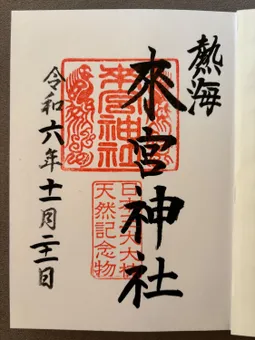 熱海
來宮神社
來宮神社
日本三大大楠
天然記念物
令和六年十一月二十一日